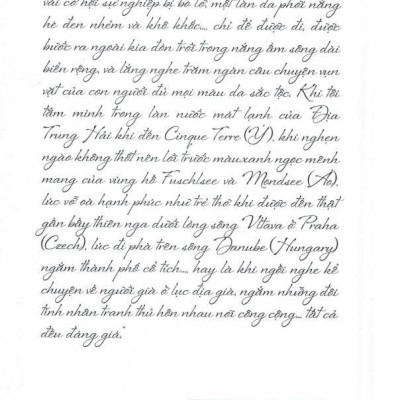 vài cơ hội sự nghiệp bị bỏ lỡ, một làn da phơi nắng
hè đen nhẻm và khô khốc.... chỉ để được đi, được
bước ra ngoài kia đón trời trong nắng ấm sông dài
biển rộng, và lắng nghe trăm ngàn câu chuyện vụn
vặt của con người đủ mọi màu da sắc tộc. Khi tôi
tắm mình trong làn nước mát lạnh của Địa
Trung Hải khi đến Cinque Terre (Ý), khi nghẹn
ngào không thốt nên lời trước màu xanh ngọc mênh
mang của vùng hồ Fuschlsee và Mondsee (Áo),
lúc vỡ oà hạnh phúc như trẻ thơ khi được đến thật
gần bầy thiên nga dưới lòng sông Vltava ở Praha
(Czech), lúc đi phà trên sông Danube (Hungary)
ngắm thành phố cổ tích.... hay là khi ngồi nghe kể
chuyện về người già ở lục địa già, ngắm những đôi
tình nhân tranh thủ hôn nhau nơi công cộng... tất cả
đều đáng giá."